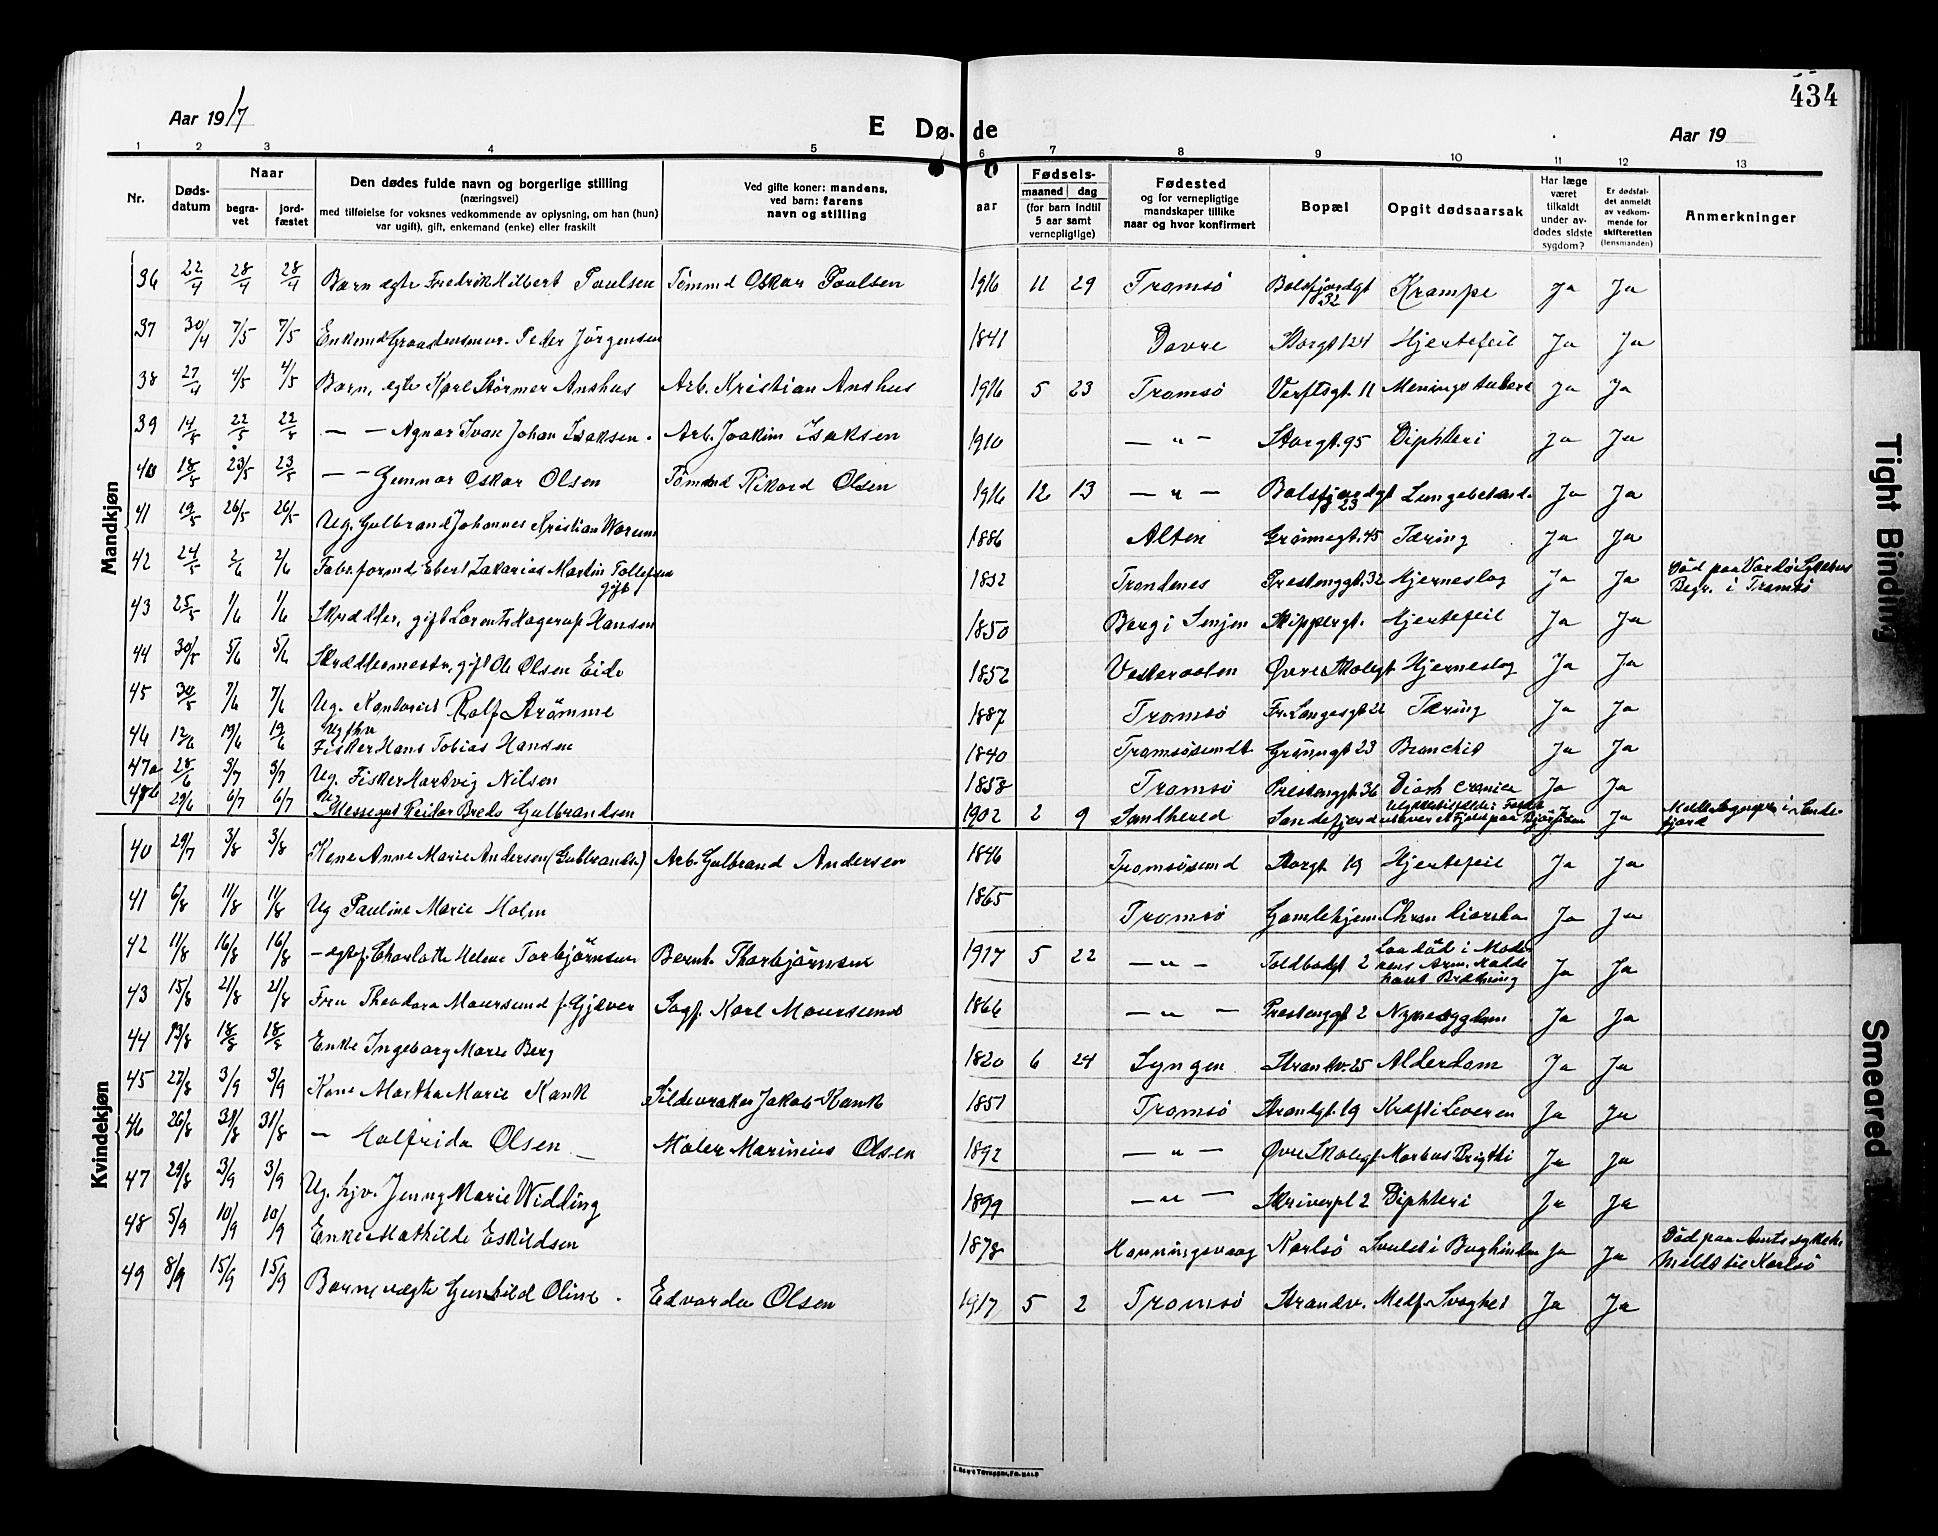 434
Aar 1917
E Dø de
Aar 19
1 2 3 4 5 6 7 8 9 10 11 12 13
Nr.
Døds-
datum
Naar
begra-
vet
jord-
fæstet
Den dødes fulde navn og borgerlige stilling
(næringsvei)
med tilføielse for voksnes vedkommende av oplysning, om han (hun)
var ugift), gift, enkemand (enke) eller fraskilt
Ved gifte koner: mandens,
ved barn: farens
navn og stilling
aar
Fødsels-
maaned dag
(for barn indtil
5 aar samt
vernepligtige)
Fødested
og for vernepligtige
mandskaper tillike
naar og hvor konfirmert
Bopæl
Opgit dødsaarsak
Har læge
været
tilkaldt
under av-
dødes sidste
sygdom?
Er dødsfal-
det anmeldt
av vedkom-
mende for
skifteretten
(lensmanden)
Anmerkninger
Mandkjøn
36 22/4 28/4 28/4 Barn ægte Fredrik Hilbert Paulsen Tømmd Oskar Paulsen 1916 11 29 Tromsø Balsfjordgt 32 Krampe Ja Ja
37 30/4 7/5 7/5 Enkemd Peder Jørgensen 1841 Dovre Storgt 124 Hjertefeil Ja Ja
38 27/4 4/5 4/5 Barn, ægte Karl Størmer Anshus Arb. Kristian Anshus 1916 5 23 Tromsø Verftsgt. 11 Ja Ja
39 14/5 22/5 22/5 — — Agnar Ivan Johan Isaksen. Arb. Joakim Isaksen 1910 — " — Storgt. 95 Diphteri Ja Ja
40 18/5 23/5 23/5 — — Gunnar Oskar Olsen Tømmd Rikard Olsen 1916 12 13 — " — Balsfjordgt 23 Ja Ja
41 19/5 26/5 26/5 Ug. Gulbrand Johannes Kristian 1886 Alten Grønnegt. 45 Tæring Ja Ja
42 24/5 2/6 2/6 Fabr. formd Ebert Zakarias Martin Tollefsen
gift 1852 Trondenes Prestenggt. 32 Hjerneslag Ja Ja Død paa Vardø Sykehus
Begr. i Tromsø
43 25/5 1/6 1/6 Skrædder, gift Lorents Hagerup Hansen 1850 Berg i Senjen Skippergt. Hjertefeil Ja Ja
44 30/5 5/6 5/6 Skræddermestr, gift Ole Olsen Eide 1852 Vesteraalen Øvre Skolegt Hjerneslag Ja Ja
45 30/5 7/6 7/6 Ug. Kontorist Rolf Strømme 1887 Tromsø Fr. Langesgt 22 Tæring Ja Ja
46 12/6 19/6 19/6 Fisker Hans Tobias Hansen 1840 Tromsøsundt Grønnegt 23 Bronchit Ja Ja
47a 28/6 3/7 3/7 Ug. Fisker Hartvig Nilsen 1858 Tromsø Prestenggt 36 Ja Ja
47b 29/6 6/7 6/7 Ug
Messegut Reidar Bredo Gulbrandsen 1902 2 9 Sandherred Sandefjord Ja Ja
Kvindekjøn
40 29/7 3/8 3/8 Kone Anne Marie Andersen Arb. Gulbrand Andersen 1846 Tromsøsund Storgt 19 Hjertefeil Ja Ja
41 6/8 11/8 11/8 Ug Pauline Marie Holm 1865 Tromsø Gamlehjem Ja Ja
42 11/8 16/8 16/8 — ægtef. Charlotte Helene Torbjørnsen Bernt Thorbjørnsen 1917 5 22 — " — Toldbodgt 2 Ja Ja
43 15/8 21/8 21/8 Fru Theodora Maursund f. Gjæver Sagf. Karl Maursund 1866 — " — Prestenggt 2 Nyresygdom Ja Ja
44 13/8 18/8 18/8 Enke Ingeborg Marie Berg 1820 6 24 Lyngen Strandv. 25 Alderdom Ja Ja
45 27/8 3/9 3/9 Kone Martha Marie Kank Sildevraker Jakob Kank 1851 Tromsø Strandgt. 19 Kræft i Leveren Ja Ja
46 26/8 31/8 31/8 — Halfrida Olsen — Maler Marinius Olsen 1892 — " — Øvre Skolegt Morbus Brigthi Ja Ja
47 29/8 3/9 3/9 Ug. hjv. Jenny Marie Widding 1899 — " — Skriverpl 2 Diphteri Ja Ja
48 5/9 10/9 10/9 Enke Mathilde Eskildsen 1878 Honningsvaag Karlsø Svulst i Bughinden Ja Ja Død paa Amtssykeh.
meldt til Karlsø
49 8/9 15/9 15/9 Barn uægte Gunhild Oline. Edvarda Olsen 1917 5 2 Tromsø Strandv. Medf. Svaghet Ja Ja
Tight Binding
Smeared